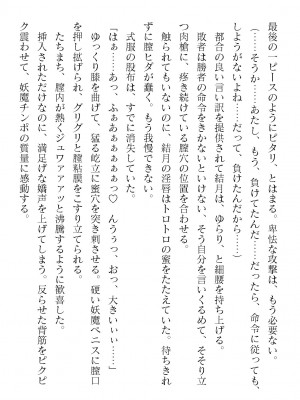 最後の一ピースのようにピタリ、とはまる。卑怯な攻撃は、もう必要ない。
（……そうか……あたし、もう、負けてたんだ……だったら、命令に従っても、
しょうがないよね……だって、負けたんだから……）
都合の良い言い訳を提供されて結月は、ゆらり、と細腰を持ち上げる。
敗者は勝者の命令をきかないといけない、そう自分を言いくるめて、そそり立
つ肉槍に、疼き続けている膣穴の位置を合わせる。
触られてもいないのに、結月の淫唇はトロトロの蜜をたたえていた。待ちきれ
ずに膣ヒダが蠢く、もう我慢できない。
式服の股布は、すでに消失していた。
「はぁ……あっ、ふぁあぁぁぁぁっ♡ んうぅっ、おっ、大きいぃぃ……」
ゆっくり膝を曲げて、猛る屹立に蜜穴を突き刺させる。硬い妖魔ペニスに膣口
を押し拡げられ、グリグリと膣粘膜をこすり立てられる。
たちまち、膣内が熱くジュワァァァッと沸騰するように歓喜した。
挿入されただけなのに、満足げな嬌声を上げてしまう。反らせた背筋をピクピ
ク震わせて、妖魔チンポの質量に感動する。